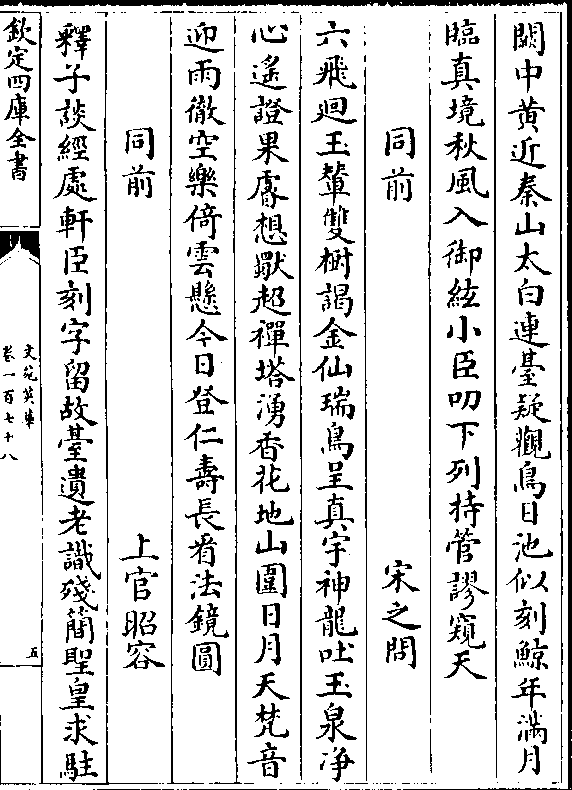 闕中黄近秦山太白連臺疑觀鳥日池似刻鯨年滿月
臨真境秋風入御絃小臣叨下列持管謬窺天
同前　宋之問
六飛迴玉輦雙樹謁金仙瑞鳥呈真宇神龍吐玉泉净
心遙證果睿想獨超禪塔湧香花地山圍日月天梵音
迎雨徹空樂倚雲懸今日登仁壽長看法鏡圓
同前　上官昭容
釋子談經處軒臣刻字留故臺遺老識殘簡聖皇求駐
欽定四庫全書
文苑英華
卷一百七十八
五